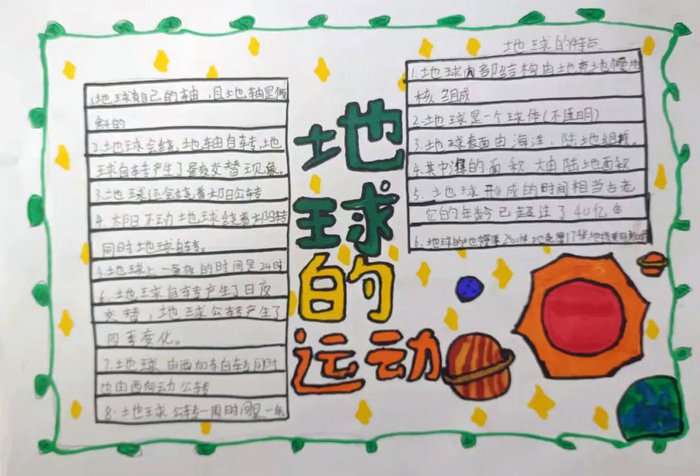 地球的运动
1.地球有自己的轴,且地轴是倾
斜的
2.地球会绕地轴自转,地
球自转产生了昼夜交替现象。
3.地球还会绕着太阳公转
4.太阳不动地球绕着太阳转
同时地球自转。
5.地球上一昼夜的时间是24时
6.地球自转产生了日夜
交替,地球公转产生了
四季变化。
7.地球由西向东自转同时
也由西向东公转
8.地球公转一周时间是一年
地球的特点
1.地球内部结构由地壳地幔地
核组成
2.地球是一个球体(不透明)
3.地球表面由海洋、陆地组成。
4.其中海的面积大由陆地面积
5.地球形成的时间相当古老
它的年龄已超过了40亿年
6.地球的地幔厚